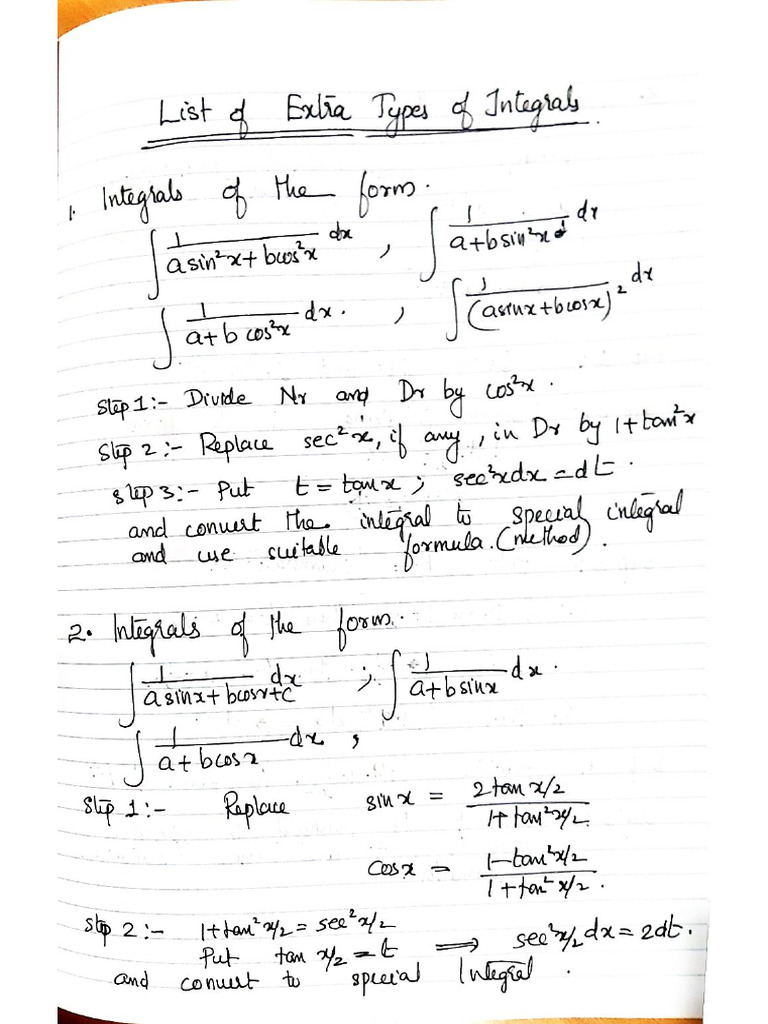 List of Extra Types of Integrals
1. Integrals of the form.
∫ 1/(a sin²x + b cos²x) dx , ∫ 1/(a + b sin²x) dx
∫ 1/(a + b cos²x) dx. , ∫ 1/(a sinx + b cosx)² dx
Step 1:- Divide Nr and Dr by cos²x.
Step 2:- Replace sec²x, if any, in Dr by 1+tan²x
Step 3:- Put t = tanx ; sec²xdx = dt.
and convert the integral to special integral
and use suitable formula. (method).
2. Integrals of the form.
∫ 1/(a sinx + b cosx + c) dx ; ∫ 1/(a + b sinx) dx.
∫ 1/(a + b cosx) dx ,
Step 1:- Replace sinx = 2 tan x/2 / 1+ tan² x/2
cosx = 1-tan² x/2 / 1+tan² x/2.
Step 2:- 1+tan² x/2 = sec² x/2
Put tan x/2 = t ⟹ sec² x/2 dx = 2dt.
and convert to special Integral.